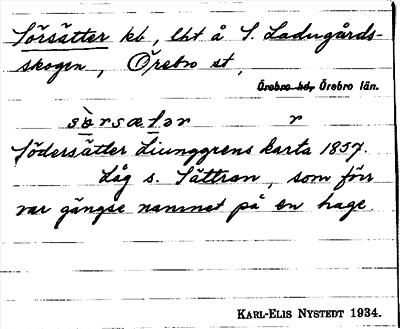 Sörsätter kb, lht å S. Ladugårds-
skogen, Örebro st,
Örebro hd, Örebro län.
sö̀rsætər r
Södersätter Liunggrens karta 1857.
Låg s. Sättran, som förr
var gängse namnet på en hage.
KARL-ELIS NYSTEDT 1934.